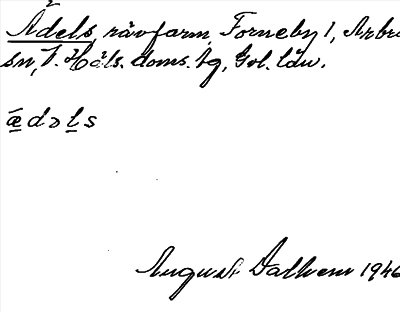 Ädels, rävfarm, Forneby 1, Arbrå
sn, V. Häls. doms. tg, Gvl. län.
ædəls
August Dalhem 1946